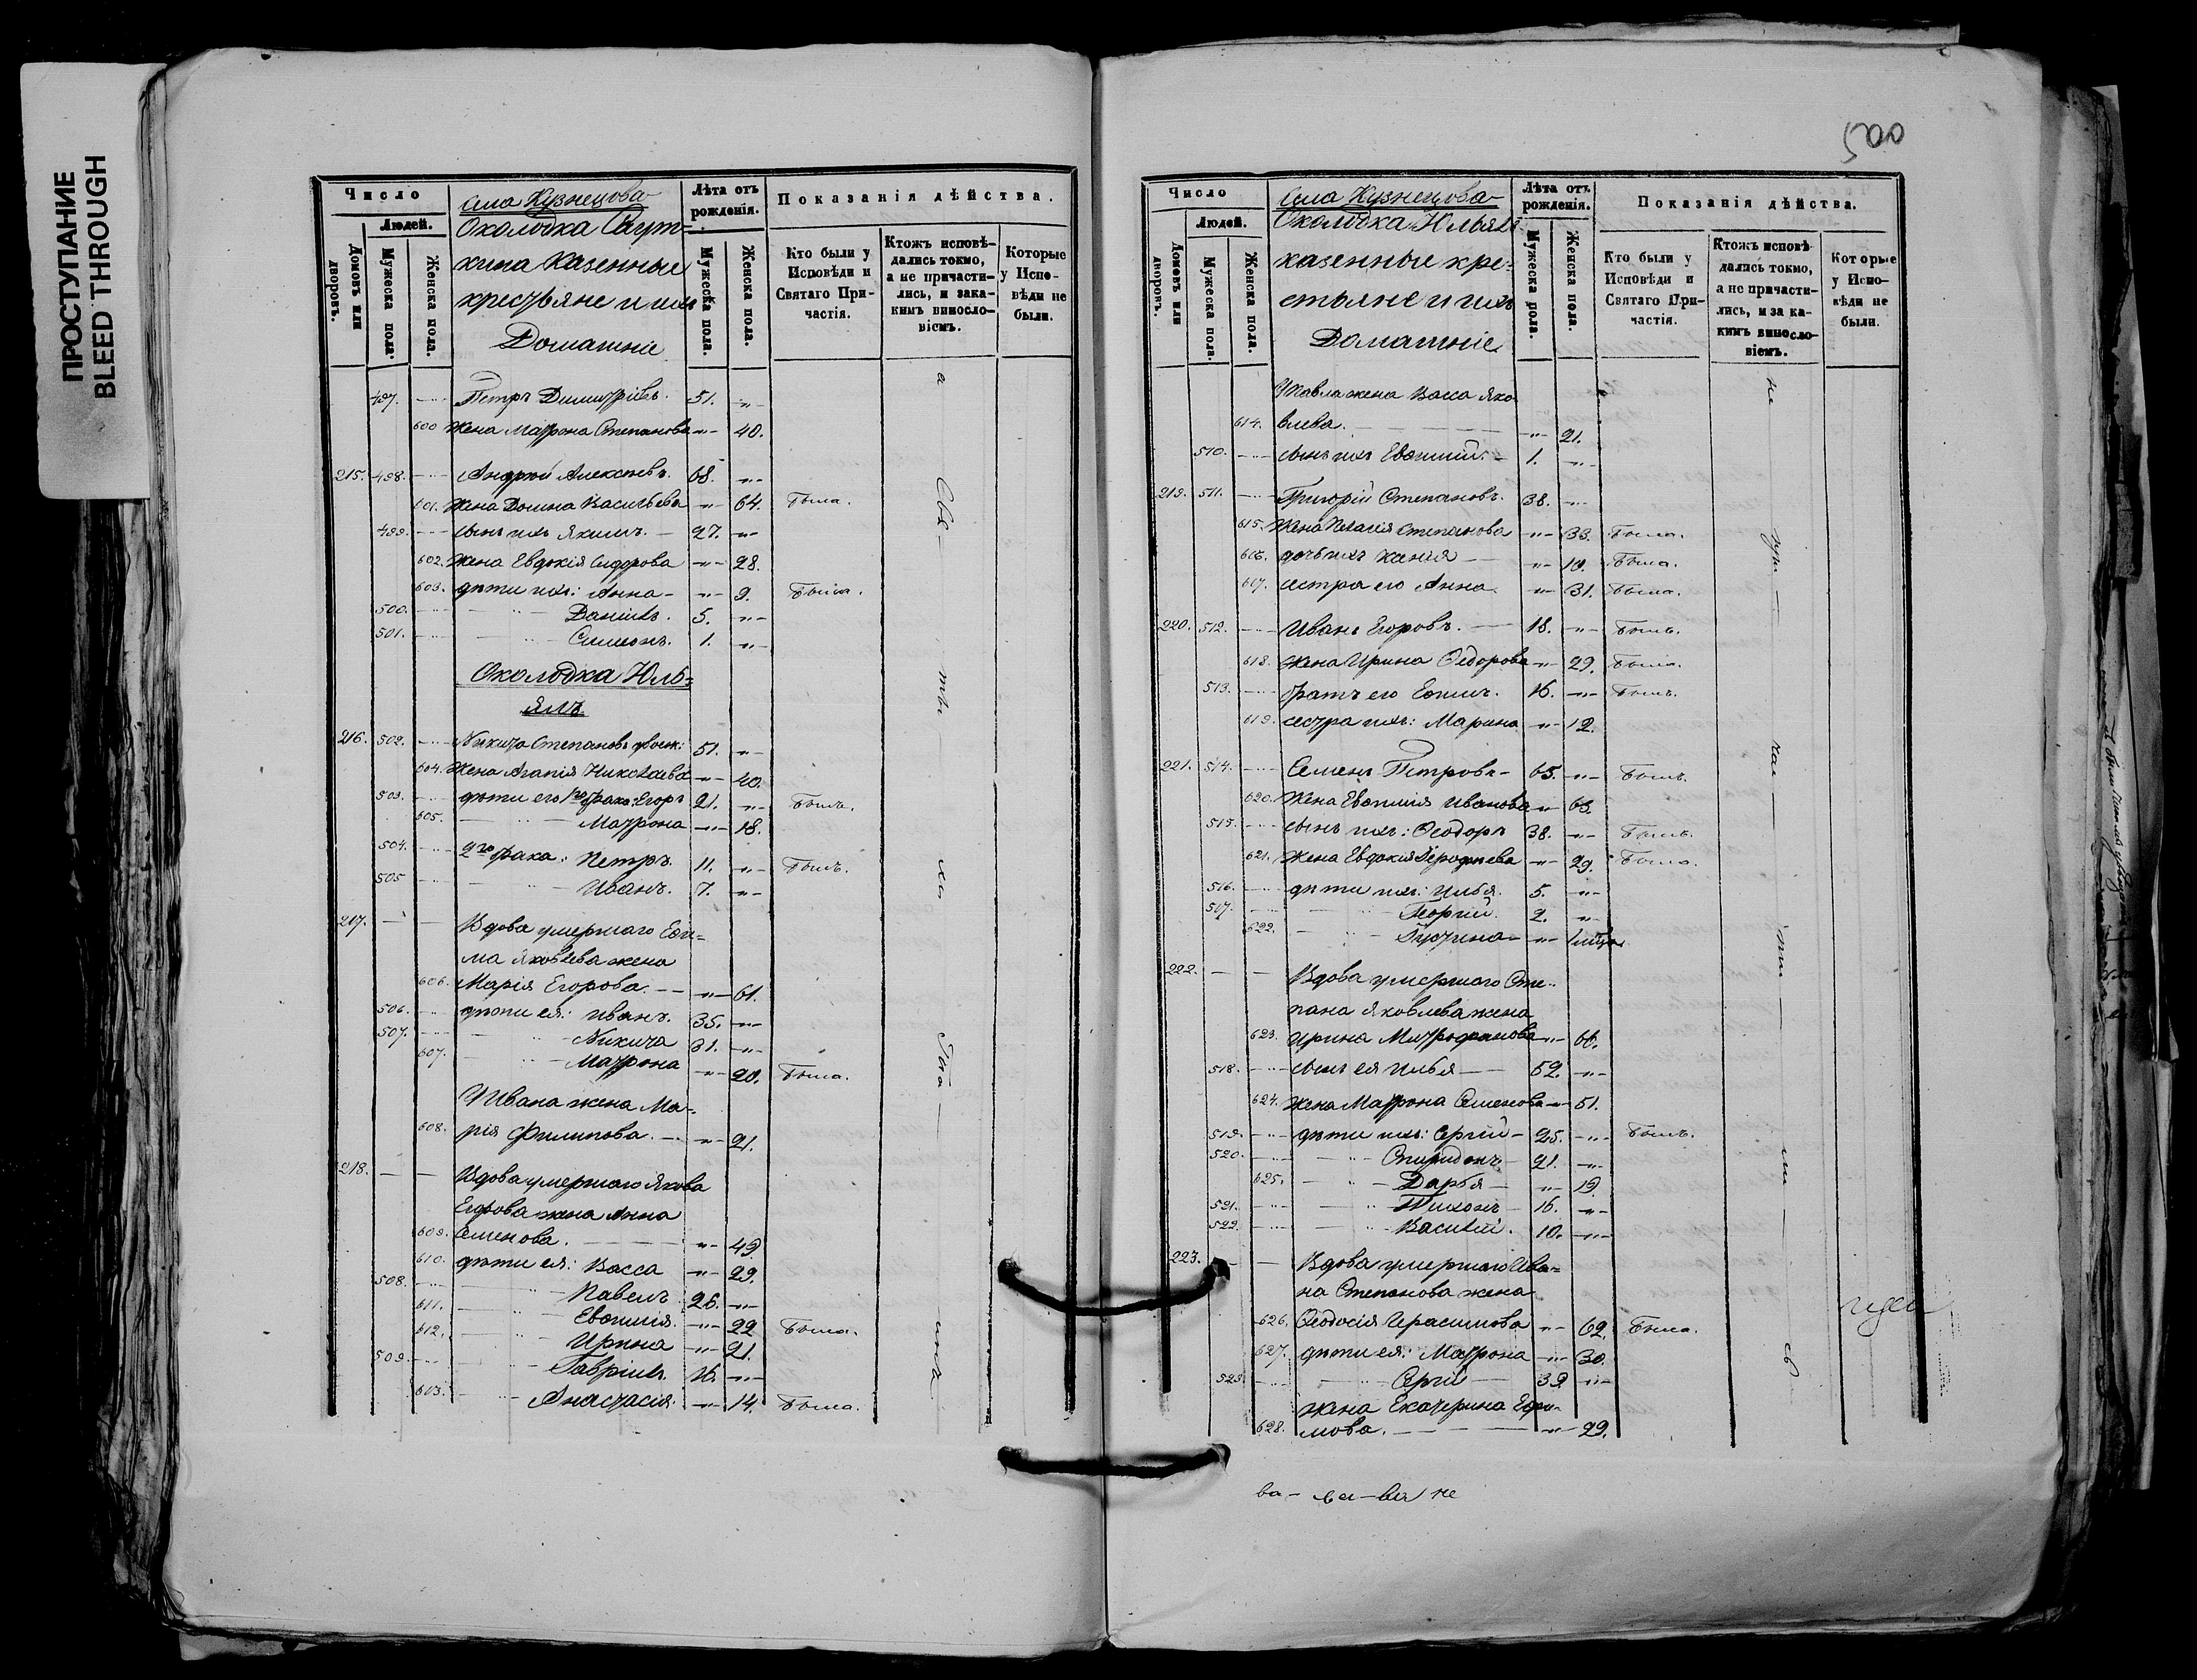 ПРОСТУПАНИЕ
BLEED THROUGH
Число
Людей.
Домовъ или дворовъ.
Мужеска пола.
Женска пола.
Села Кузнецова
Околодка
хина казенные
крестьяне и ихъ
Домашніе
Лѣта отъ рожденія.
Мужеска пола.
Женска пола.
Показанія дѣйства.
Кто были у Исповѣди и Святаго Причастія.
Ктожъ исповѣдались токмо, а не причастились, и закакимъ винословіемъ.
Которые у Исповѣди не были.
497. Петръ Димитріевъ. 51.
600 Жена Матрона Степанова 40.
215. 498. Андрей Алексѣевъ. 68.
601. Жена Домна Васильева 64. Была.
499. сынъ ихъ Якимъ. 27.
602. Жена Евдокія Сидорова 28.
603. дѣти ихъ: Анна 9. Была.
500. Даніилъ. 5.
501. Симеонъ. 1.
Околодка Юль=
ялъ
216. 502. Никита Степановъ двоеж: 51.
604. Жена Агапія Николаева 40.
503. дѣти его 1го брака: Егоръ 21. Былъ.
605. Матрона 18.
504. 2го брака: Петръ. 11. Былъ.
505 Иванъ. 7.
217. Вдова умершаго Ефи=
ма Яковлева жена
606. Марія Егорова. 61.
506. дѣти ея: Иванъ. 35.
507. Никита 31.
607. Матрона 20. Была.
Ивана жена Ма=
608. рія Филипова. 21.
218. Вдова умершаго Якова
Егорова жена Анна
609. Семенова. 49
610. дѣти ея: Васса 29.
508. Павелъ 26.
611. Евфимія. 22 Была.
612. Ирина 21.
509. Гавріилъ. 16.
613. Анастасія. 14. Была.
500
Число
Людей.
Домовъ или дворовъ.
Мужеска пола.
Женска пола.
Села Кузнецова
Околодка Юльялъ
казенные кре=
стьяне и ихъ
Домашніе
Лѣта отъ рожденія.
Мужеска пола.
Женска пола.
Показанія дѣйства.
Кто были у Исповѣди и Святаго Причастія.
Ктожъ исповѣдались токмо, а не причастились, и за какимъ винословіемъ.
Которые у Исповѣди не были.
Павла жена Васса Яко
614. влева. 21.
510. сынъ ихъ Евфимій. 1.
219. 511. Григорій Степановъ. 38.
615. Жена Пелагія Степанова 33. Была.
616. дочь ихъ Ксенія 10. Была.
617. сестра его Анна. 31. Была.
220. 512. Иванъ Егоровъ. 18. Былъ.
618. жена Ирина Ѳедорова 29. Была.
513. братъ его Ефимъ. 16. Былъ.
619. сестра ихъ: Марина 12.
221. 514. Семенъ Петровъ 65. Былъ.
620. Жена Евфимія Иванова 63.
515. сынъ ихъ: Ѳеодоръ 38. Былъ.
621. Жена Евдокія 29. Была.
516. дѣти ихъ: Илья. 5.
517. Георгій. 2.
622.
222. Вдова умершаго Сте=
пана Яковлева жена
623. Ирина Митрофанова 66.
518. сынъ ея Илья 52.
624. Жена Матрона Семенова 51.
519. дѣти ихъ: Сергій 25. Былъ.
520. Спиридонъ 21.
625. Дарья 19.
521. Тихонъ 16.
522. Василій. 10.
223. Вдова умершаго Ива=
на Степанова жена
626. Ѳеодосія Герасимова 62. Была.
627. дѣти ея: Матрона 30.
523. Сергій 39.
жена Екатерина Ефи=
628. мова. 29.